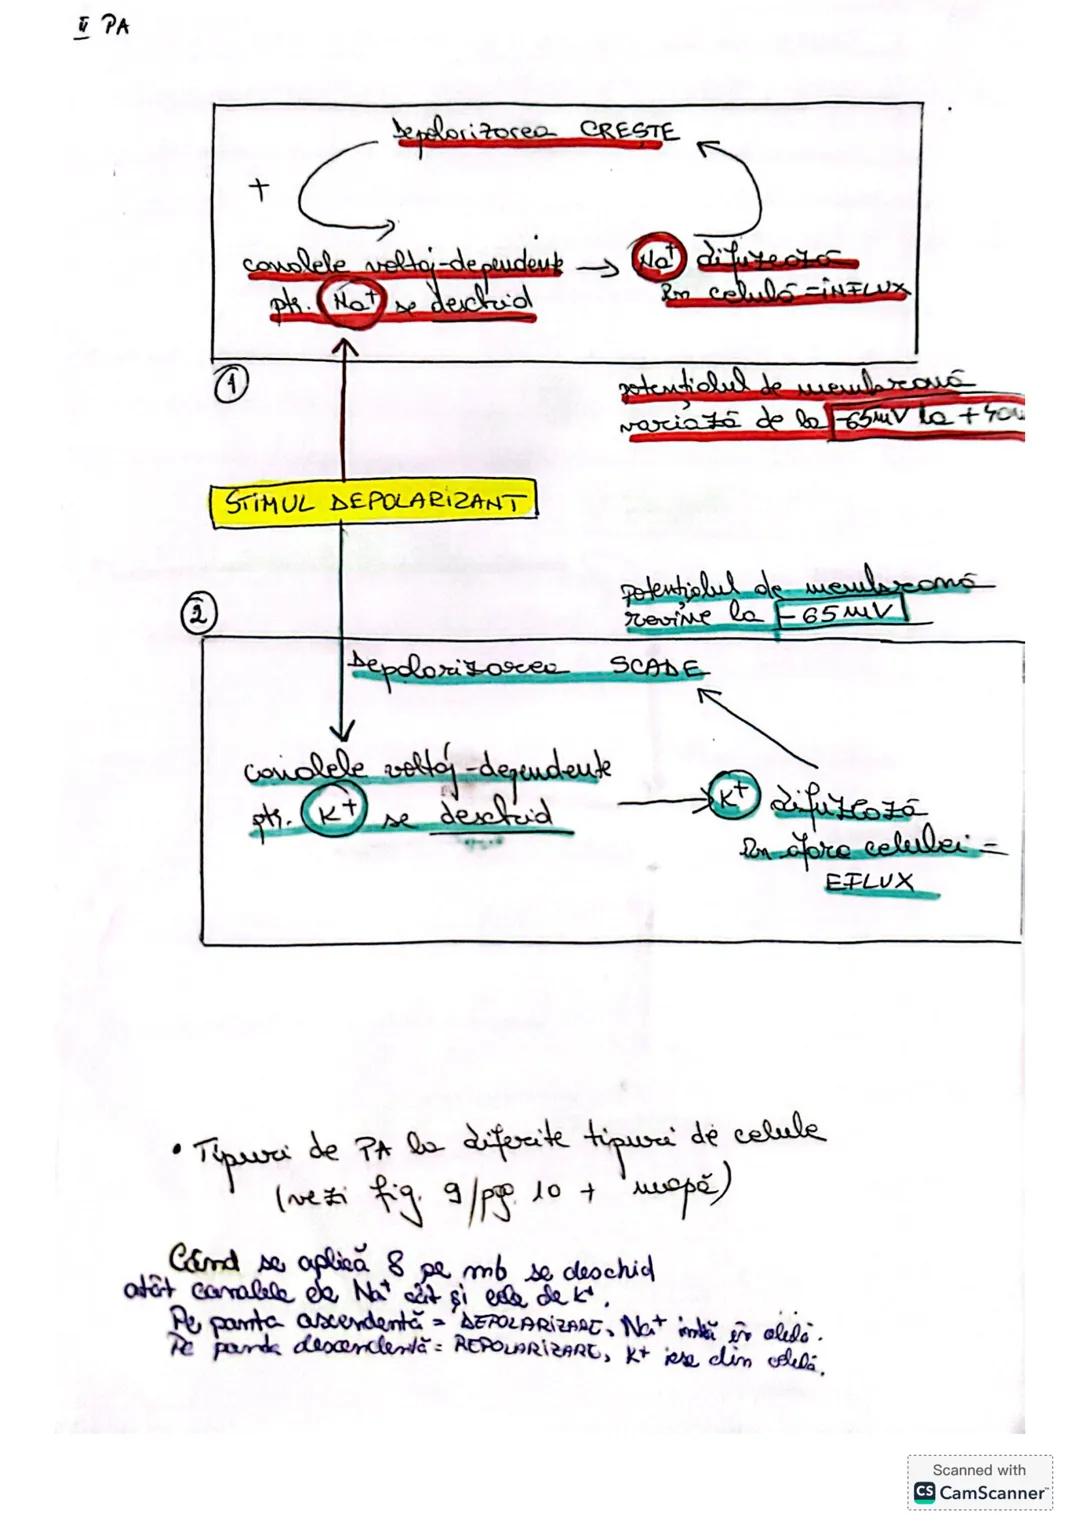 II PA
Depolarizarea CREȘTE
+
canalele voltaj-dependente → Na+ difuzează
ptr. Na+ se deschid
în celulă = INFLUX
1
potențialul de membrană
variază de la -65mV la +40
STIMUL DEPOLARIZANT
potențialul de membrană
2
revine la -65mV
Depolarizarea SCADE
canalele voltaj-dependente
ptr. K+ se deschid
K+ difuzează
în afara celulei =
EFLUX
• Tipuri de PA la diferite tipuri de celule
(vezi fig. 9/pg. 10 + mapă)
Când se aplică S pe mb se deschid
atât canalele de Na+ cât și cele de K+.
Pe panta ascendentă = DEPOLARIZARE, Na+ intră în celulă.
Pe panta descendentă = REPOLARIZARE, K+ iese din celulă.
Scanned with
CS CamScanner